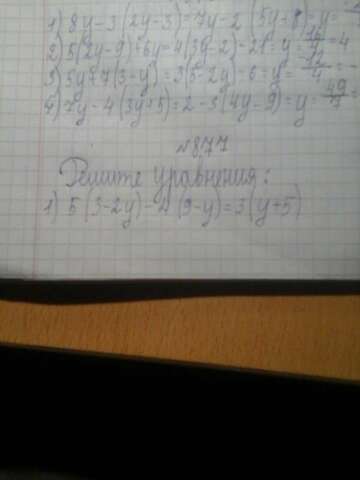 1) 8y-3(2y-3)=7y-2(5y+8)=y=
2) 5(2y-9)+6y=4(3y-2)-21=y=16/4=4
3) 5y+7(3-y)=3(5-2y)+6=y=-12/4=-
4) 7y-4(3y+5)=2-3(4y-9)=y=49/7=
№877
Решите уравнения:
1) 5(3-2y)-4(9-y)=3(y+5)